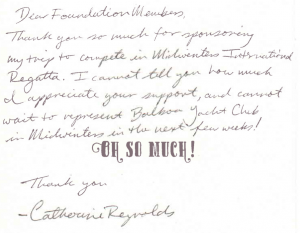 Dear Foundation Members,
Thank you so much for sponsoring
my trip to compete in Midwinters International
Regatta. I cannot tell you how much
I appreciate your support, and cannot
wait to represent Balboa Yacht Club
in Midwinters in the next few weeks!
OH SO MUCH!
Thank you
-Catherine Reynolds